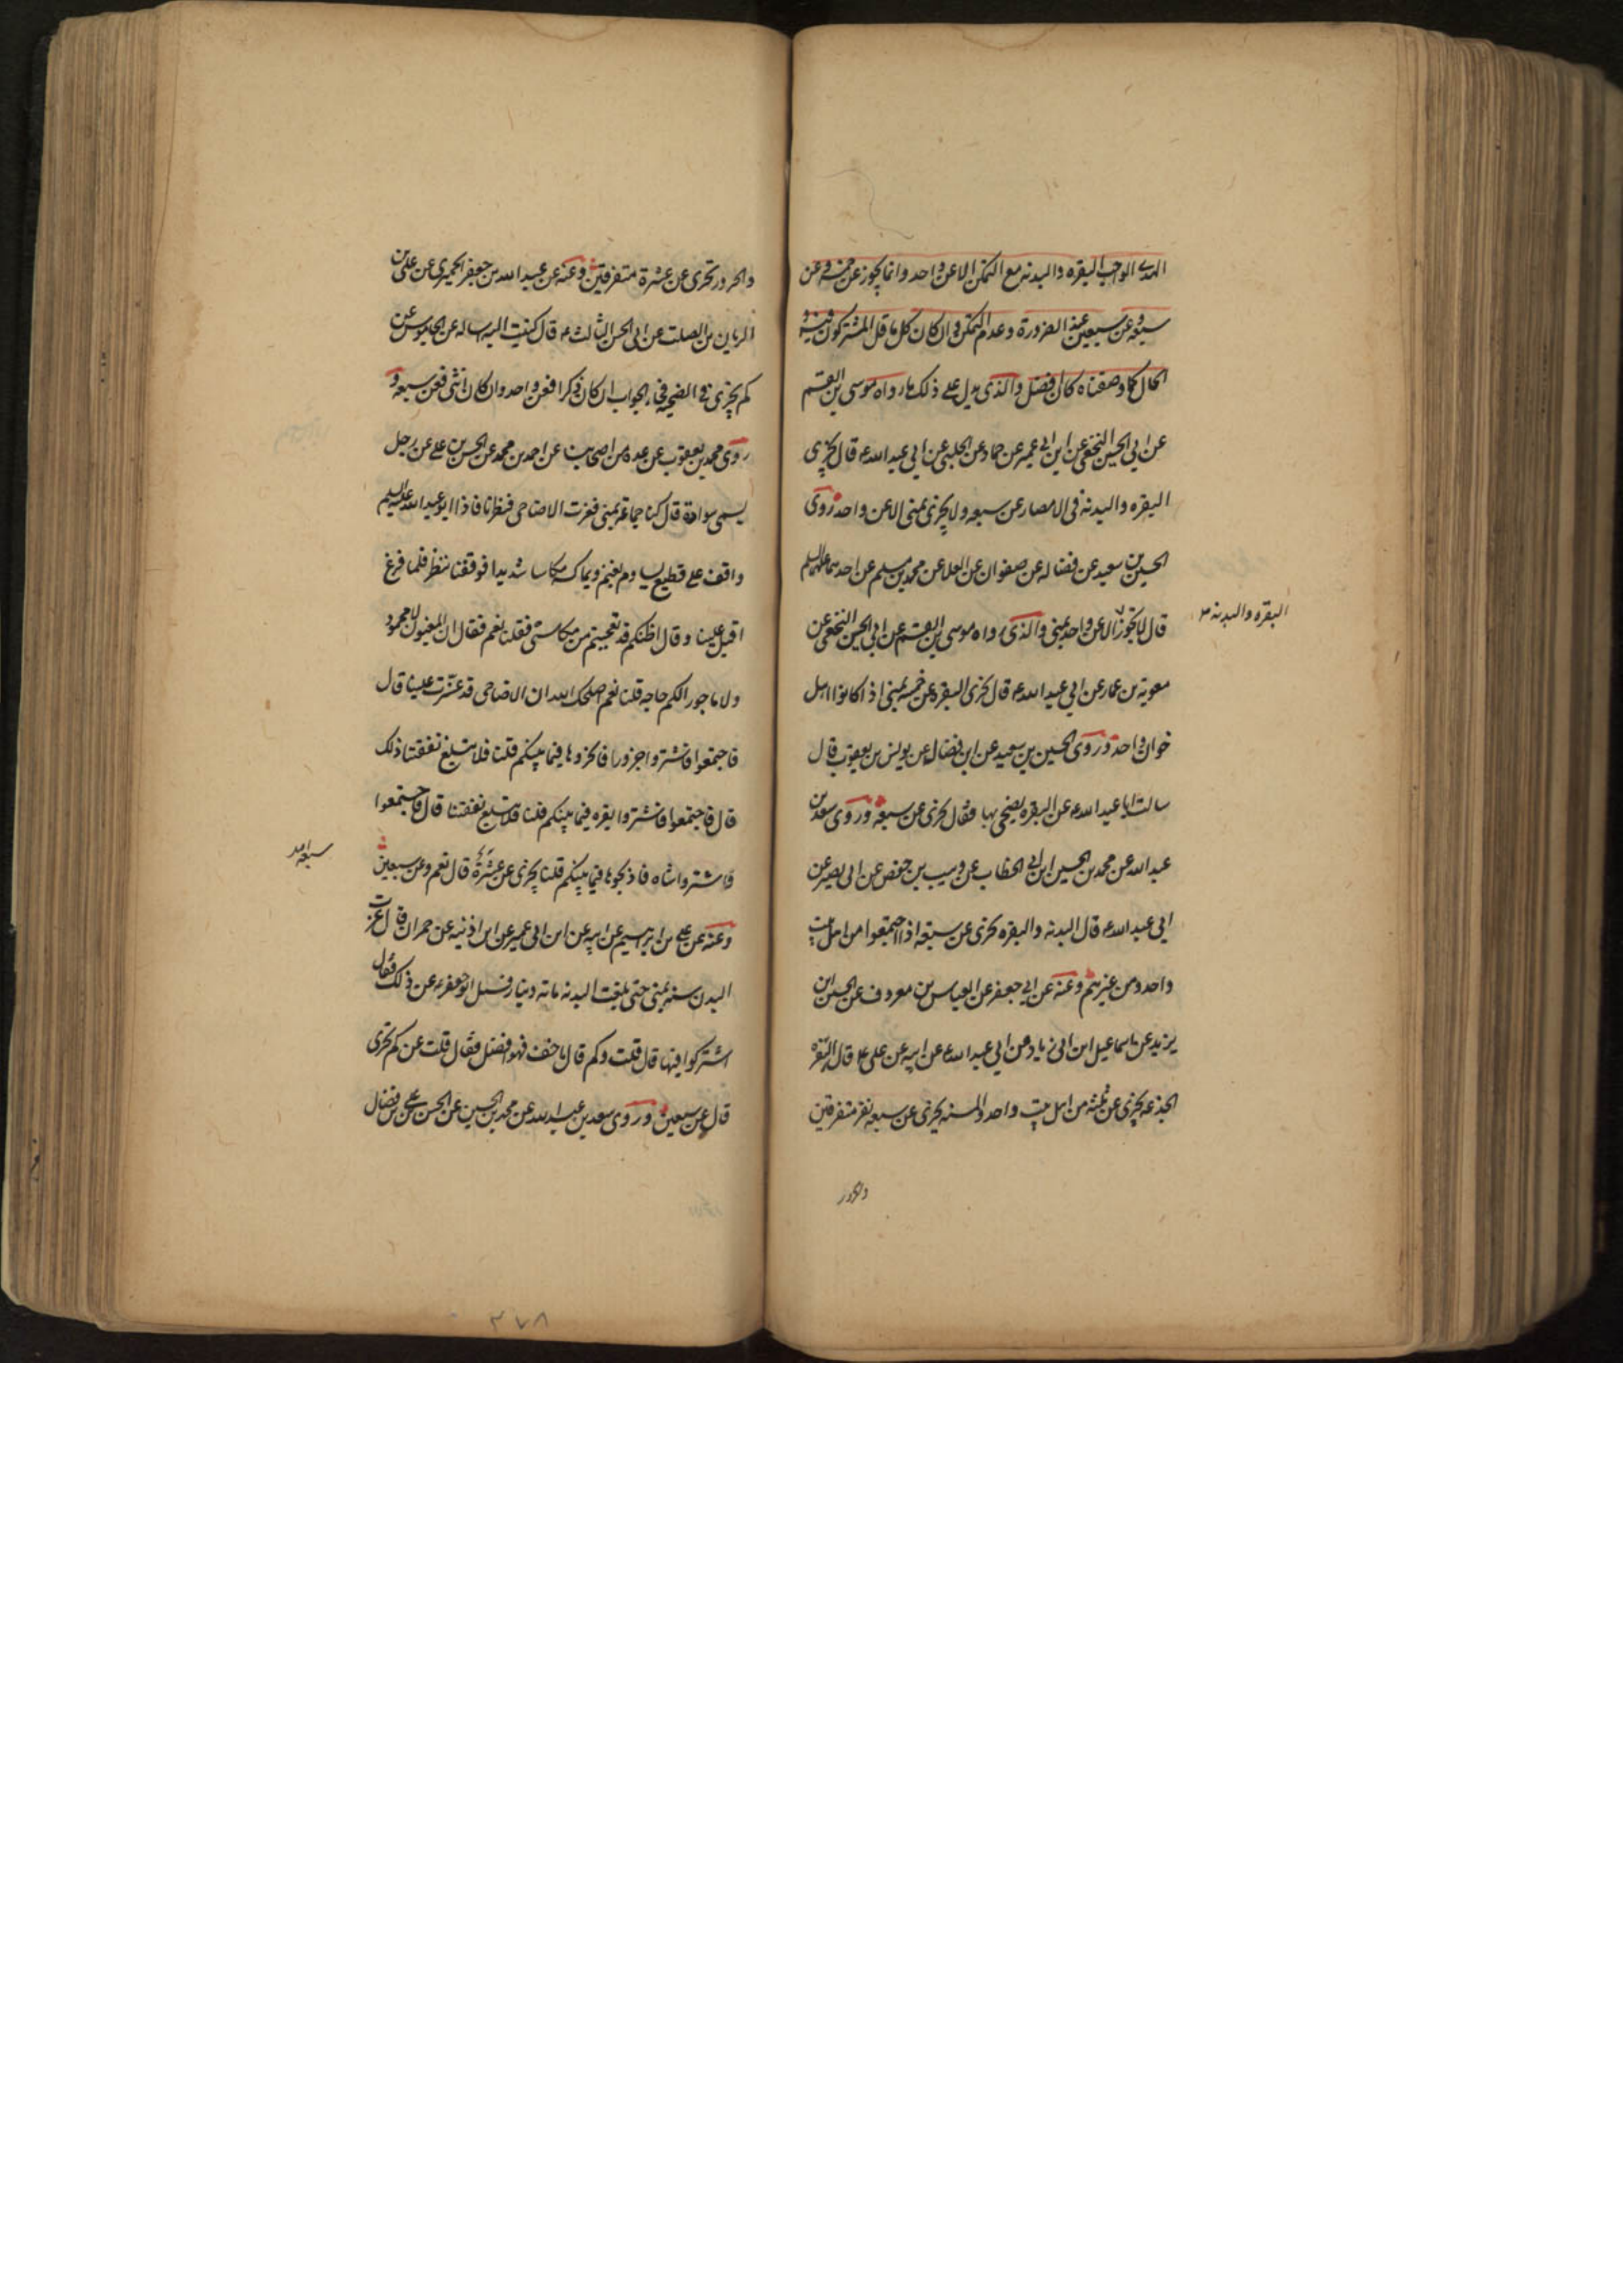 الهدى الواجب البقره والبدنه مع التمكن الا عن واحد وانما يجوز عن خمسة وعن
سبعة وعن سبعين عند الضرورة وعدم التمكن وان كان كل ما قل المشتركون فيه و
الحال كما وصفناه كان افضل والذى يدل على ذلك ما رواه موسى بن القسم
عن ابى الحسين النخعى عن ابن ابى عمير عن حماد عن الحلبى عن ابى عبد الله ع قال يجزى
البقره والبدنه فى الامصار عن سبعه ولا يجزى بمنى الا عن واحد وروى
الحسين بن سعيد عن فضاله عن صفوان عن العلا عن محمد بن مسلم عن احدهما عليهما السلم
قال لا يجوز الا عن واحد بمنى والذى رواه موسى بن القسم عن ابى الحسين النخعى عن
البقره والبدنه
معويه بن عمار عن ابى عبد الله ع قال يجزى البقره عن خمسه بمنى اذا كانوا اهل
خوان واحد وروى الحسين بن سعيد عن ابن فضال عن يونس بن يعقوب قال
سالت ابا عبد الله ع عن البقره يضحى بها فقال يجزى عن سبعه وروى سعد بن
عبد الله عن محمد بن الحسين ابن ابى الخطاب عن وهيب بن حفص عن ابى بصير عن
ابى عبد الله ع قال البدنه والبقره يجزى عن سبعه اذا اجتمعوا من اهل بيت
واحد ومن غيرهم وعنه عن ابى جعفر عن العباس بن معروف عن الحسين ابن
يزيد عن اسماعيل ابن ابى زياد عن ابى عبد الله ع عن ابيه عن على ع قال البقره
الجذعه يجزى عن ثلثه من اهل بيت واحد والمسنه يجزى عن سبعه نفر متفرقين
والجزور
والجزور تجزى عن عشرة متفرقين وعنه عن عبد الله بن جعفر الحميرى عن على بن
الريان بن الصلت عن ابى الحسن الثالث ع قال كتبت اليه اساله عن الجاموس عن
كم يجزى فى الضحيه فجاء الجواب ان كان ذكرا فعن واحد وان كان انثى فعن سبعه و
روى محمد بن يعقوب عن عده من اصحابنا عن احمد بن محمد عن الحسن بن على عن رجل
يسمى سوادة قال كنا جماعة بمنى فعزت الاضاحى فنظرنا فاذا ابو عبد الله عليه السلم
واقف على قطيع يساوم بغنم ويماكسهم مكاسا شديدا فوقفنا ننظر فلما فرغ
اقبل علينا وقال اظنكم قد تعجبتم من مكاستى فقلنا نعم فقال ان المغبون لا محمود
ولا ماجور الكم حاجه قلنا نعم اصلحك الله ان الاضاحى قد عزت علينا قال
فاجتمعوا فاشتروا جزورا فانحروها فيما بينكم قلنا فلا تبلغ نفقتنا ذلك
قال فاجتمعوا فاشتروا بقره فيما بينكم قلنا فلا تبلغ نفقتنا قال فاجتمعوا
فاشتروا شاه فاذبحوها فيما بينكم قلنا يجزى عن عشرة قال نعم وعن سبعين
وعنه عن على بن ابرهيم عن ابيه عن ابن ابى عمير عن ابن اذنيه عن حمران قال عزت
البدن سنه بمنى حتى بلغت البدنه ماته دينار فسل ابو جعفر ع عن ذلك فقال
اشتركوا فيها قال قلت وكم قال ما خف فهو افضل فقال قلت عن كم تجزى
قال عن سبعين وروى سعد بن عبد الله عن محمد بن الحسين عن الحسن بن على بن فضال
٣٧٨